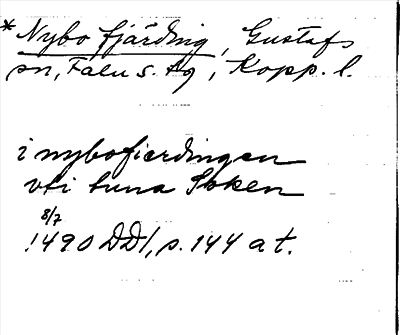 * Nybo fjärding, Gustafs
sn, Falu s. tg, Kopp. l.
i nybofierdingen
vti tuna Soken
8/7
1490 DD1, s. 144 a t.